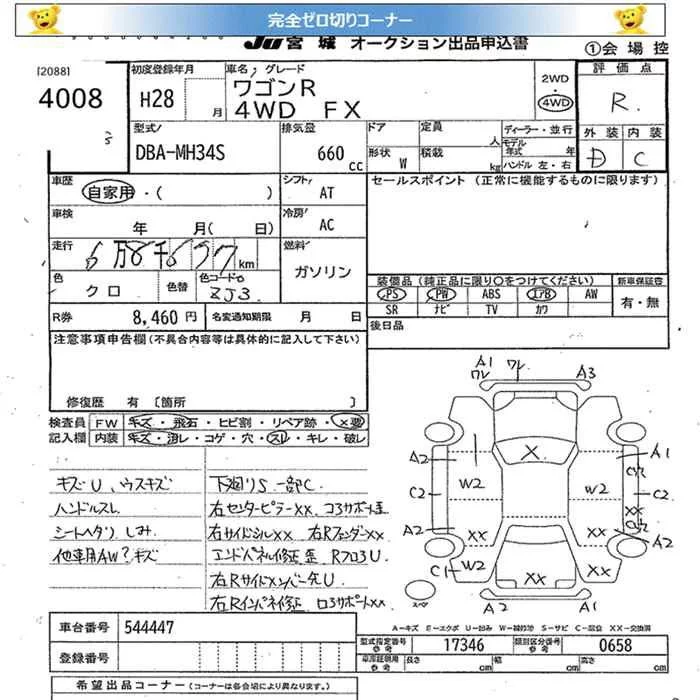 完全ゼロ切りコーナー
JU 宮城 オークション出品申込書
①会場控
[2088]
4008
初度登録年月
H28 月
車名・グレード
ワゴンR
4WD FX
2WD
・
4WD
評価点
R
外装 内装
D C
型式
DBA-MH34S
排気量
660 cc
ドア
形状 W
定員 人
積載 kg
ディーラー・並行
モデル年式 年
ハンドル 左・右
車歴
自家用・( )
シフト AT
セールスポイント (正常に機能するものに限ります)
車検
年 月( 日)
冷房 AC
走行
6万8千637km
燃料 ガソリン
色
クロ
色替
色コードNo
ZJ3
装備品 (純正品に限り○をつけてください)
新車保証書
PS PW ABS エアB AW
SR ナビ TV カワ
有・無
R券 8,460円
名変通知期限 月 日
後日品
注意事項申告欄 (不具合内容等は具体的に記入して下さい)
修復歴 有 [箇所 ]
検査員記入欄
FW キズ・飛石・ヒビ割・リペア跡・×要
内装 キズ・汚レ・コゲ・穴・スレ・キレ・破レ
キズU、ウスキズ
ハンドルスレ
シートヘタリ しみ
他車用AW?キズ
下廻りS 一部C
右センターピラーXX コアサポート歪
右サイドシルXX 右RフェンダーXX
エンドパネル修正歪 RフロアU
右RサイドメンバーたU
右Rインパネ修正 ロアサポートXX
A1
ワレ
ワレ
A3
A2
A1
C2
W2
X
W2
C2
A2
XX
XX
XX
A2
C1
W2
XX
スペア
A2
A1
A-キズ E-エクボ U-凹み W-補修跡 S-サビ C-腐食 XX-交換済
車台番号 544447
登録番号
型式指定番号 参考 17346
類別区分番号 参考 0658
車庫証明用 参考
長さ cm
幅 cm
高さ cm
希望出品コーナー (コーナーは各会場により異なります)